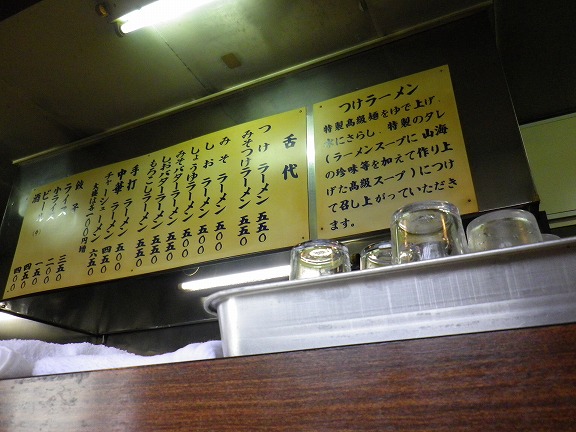 つけラーメン
特製高級麺をゆで上げ
水にさらし、特製のタレ
(ラーメンスープに山海
の珍味等を加えて作り上
げた高級スープ)につけ
て召し上がっていただき
ます。
舌代
つけラーメン 五五〇
みそつけラーメン 五五〇
みそラーメン 五五〇
しおラーメン 五五〇
しょうゆラーメン 五五〇
みそバターラーメン 五五〇
しおバターラーメン 五五〇
もろこしラーメン 五五〇
手打
中華ラーメン 五〇〇
チャーシューメン 六五〇
大盛は一〇〇円増
餃子 三五〇
ライス 二〇〇
小ライス 一五〇
ビール 四五〇
酒 四〇〇